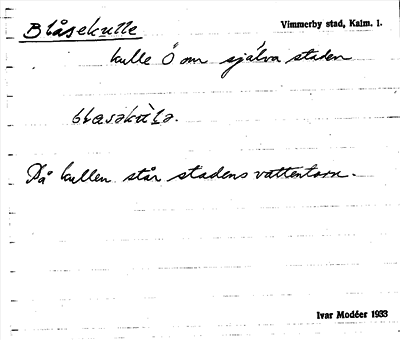 Blåsekulle
Vimmerby stad, Kalm. l.
kulle Ö om själva staden
På kullen står stadens vattentorn.
Ivar Modéer 1933